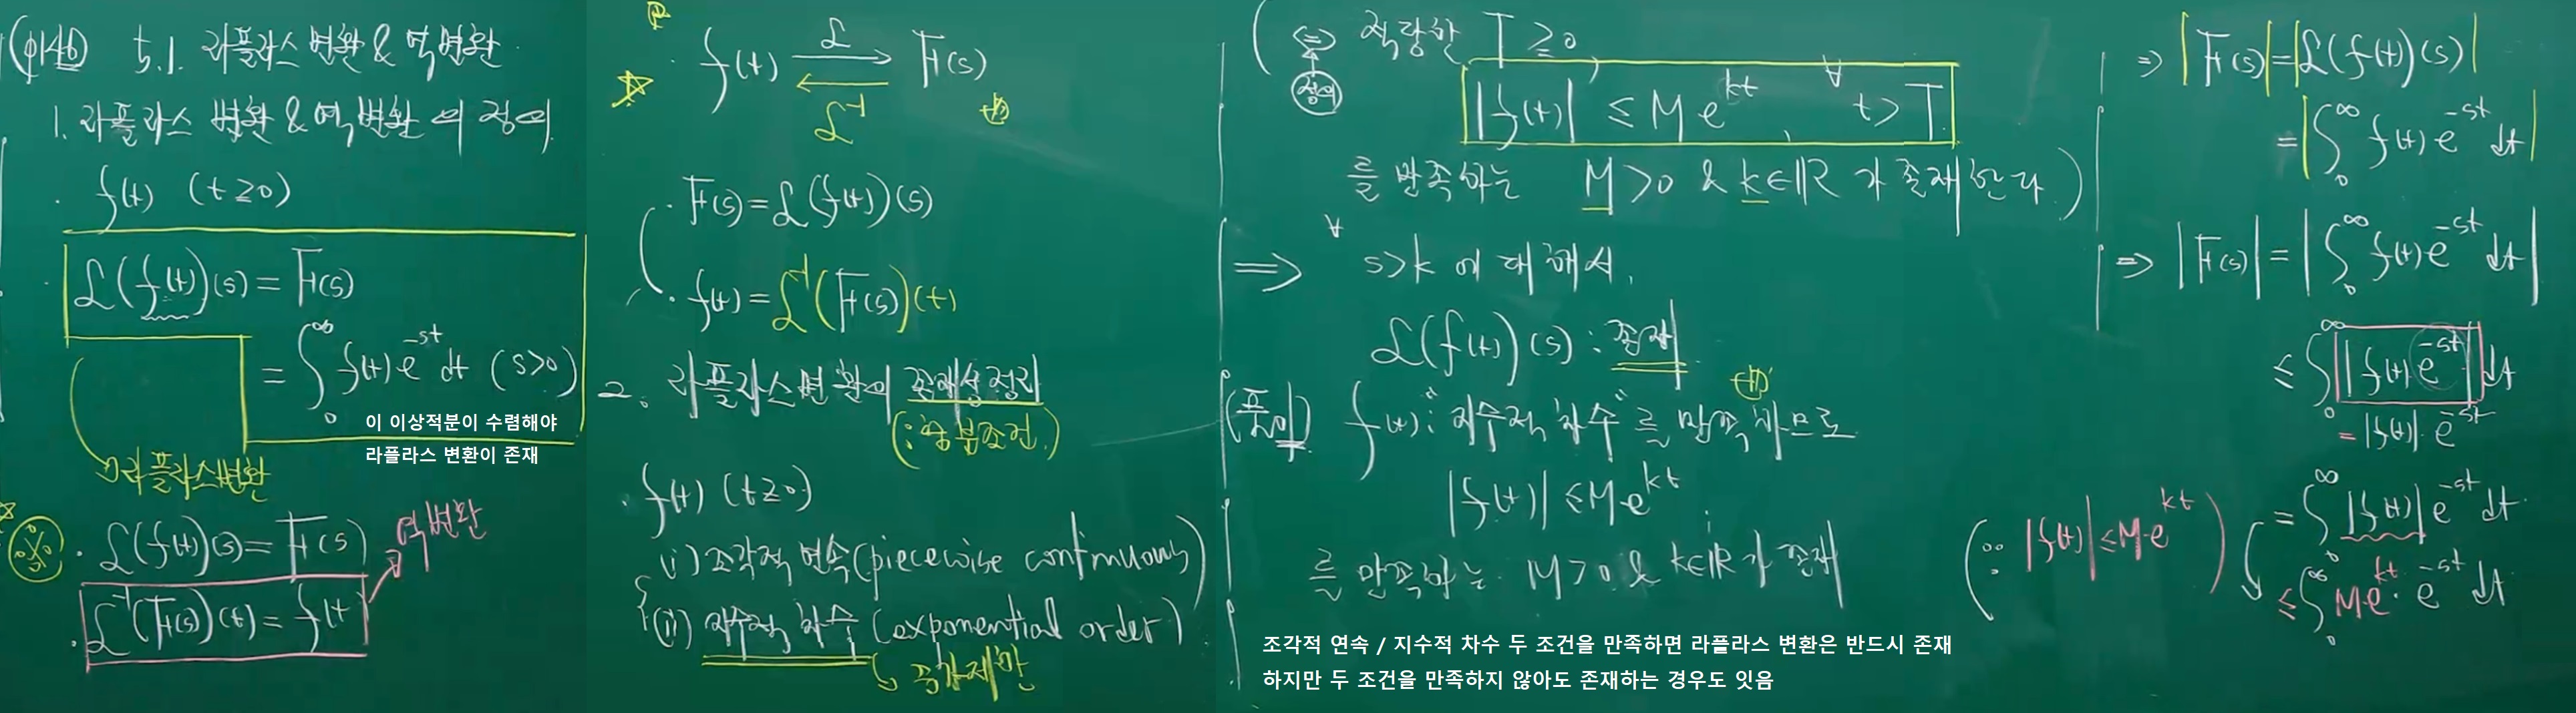 5.1. 라플라스 변환 & 역변환
1. 라플라스 변환 & 역변환의 정의.
· f(t) (t≥0)
· ℒ(f(t))(s) = F(s)
= ∫₀^∞ f(t) e^{-st} dt (s>0)
이 이상적분이 수렴해야
라플라스 변환이 존재
라플라스변환
· ℒ(f(t))(s) = F(s)
역변환
· ℒ⁻¹(F(s))(t) = f(t)
· f(t) ℒ F(s)
ℒ⁻¹
· F(s) = ℒ(f(t))(s)
· f(t) = ℒ⁻¹(F(s))(t)
2. 라플라스변환의 존재성정리
(: 충분조건.)
· f(t) (t≥0)
(i) 조각적 연속(piecewise continuous)
(ii) 지수적 차수 (exponential order)
증가제한
(⇔ 적당한 T≥0,
정의
|f(t)| ≤ M e^{kt}, ∀t > T
를 만족하는 M>0 & k∈ℝ가 존재한다.)
⇒ ∀s>k 에 대해서,
ℒ(f(t))(s) : 존재
(풀이) f(t): "지수적 차수"를 만족하므로
|f(t)| ≤ M e^{kt}
를 만족하는 M>0 & k∈ℝ가 존재
조각적 연속 / 지수적 차수 두 조건을 만족하면 라플라스 변환은 반드시 존재
하지만 두 조건을 만족하지 않아도 존재하는 경우도 잇음
⇒ |F(s)| = |ℒ(f(t))(s)|
= |∫₀^∞ f(t) e^{-st} dt|
⇒ |F(s)| = |∫₀^∞ f(t) e^{-st} dt|
≤ ∫₀^∞ |f(t) e^{-st}| dt
= |f(t)| · e^{-st}
= ∫₀^∞ |f(t)| e^{-st} dt
(∵ |f(t)| ≤ M·e^{kt})
≤ ∫₀^∞ M e^{kt} · e^{-st} dt